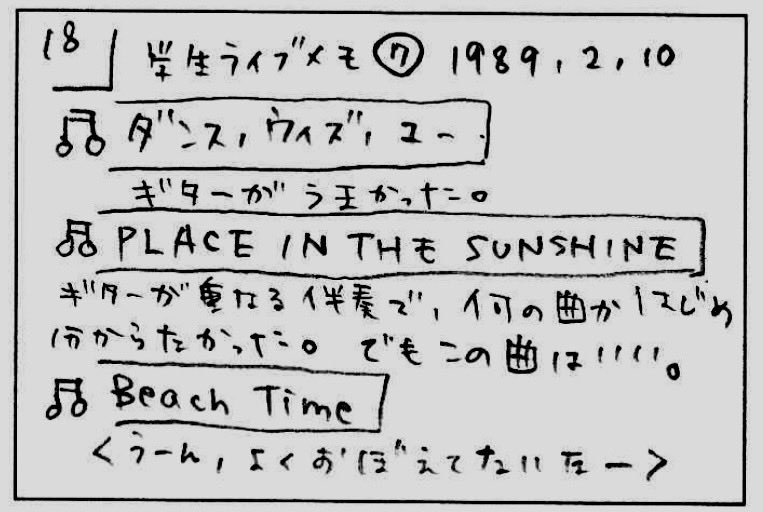 18 学生ライブメモ⑦ 1989.2.10
ダンス,ウィズ,ユー.
ギターがうまかった。
PLACE IN THE SUNSHINE
ギターが重なる伴奏で、何の曲かはじめ
分からなかった。でもこの曲はいい。
Beach Time
<うーん,よくおぼえてないなー>